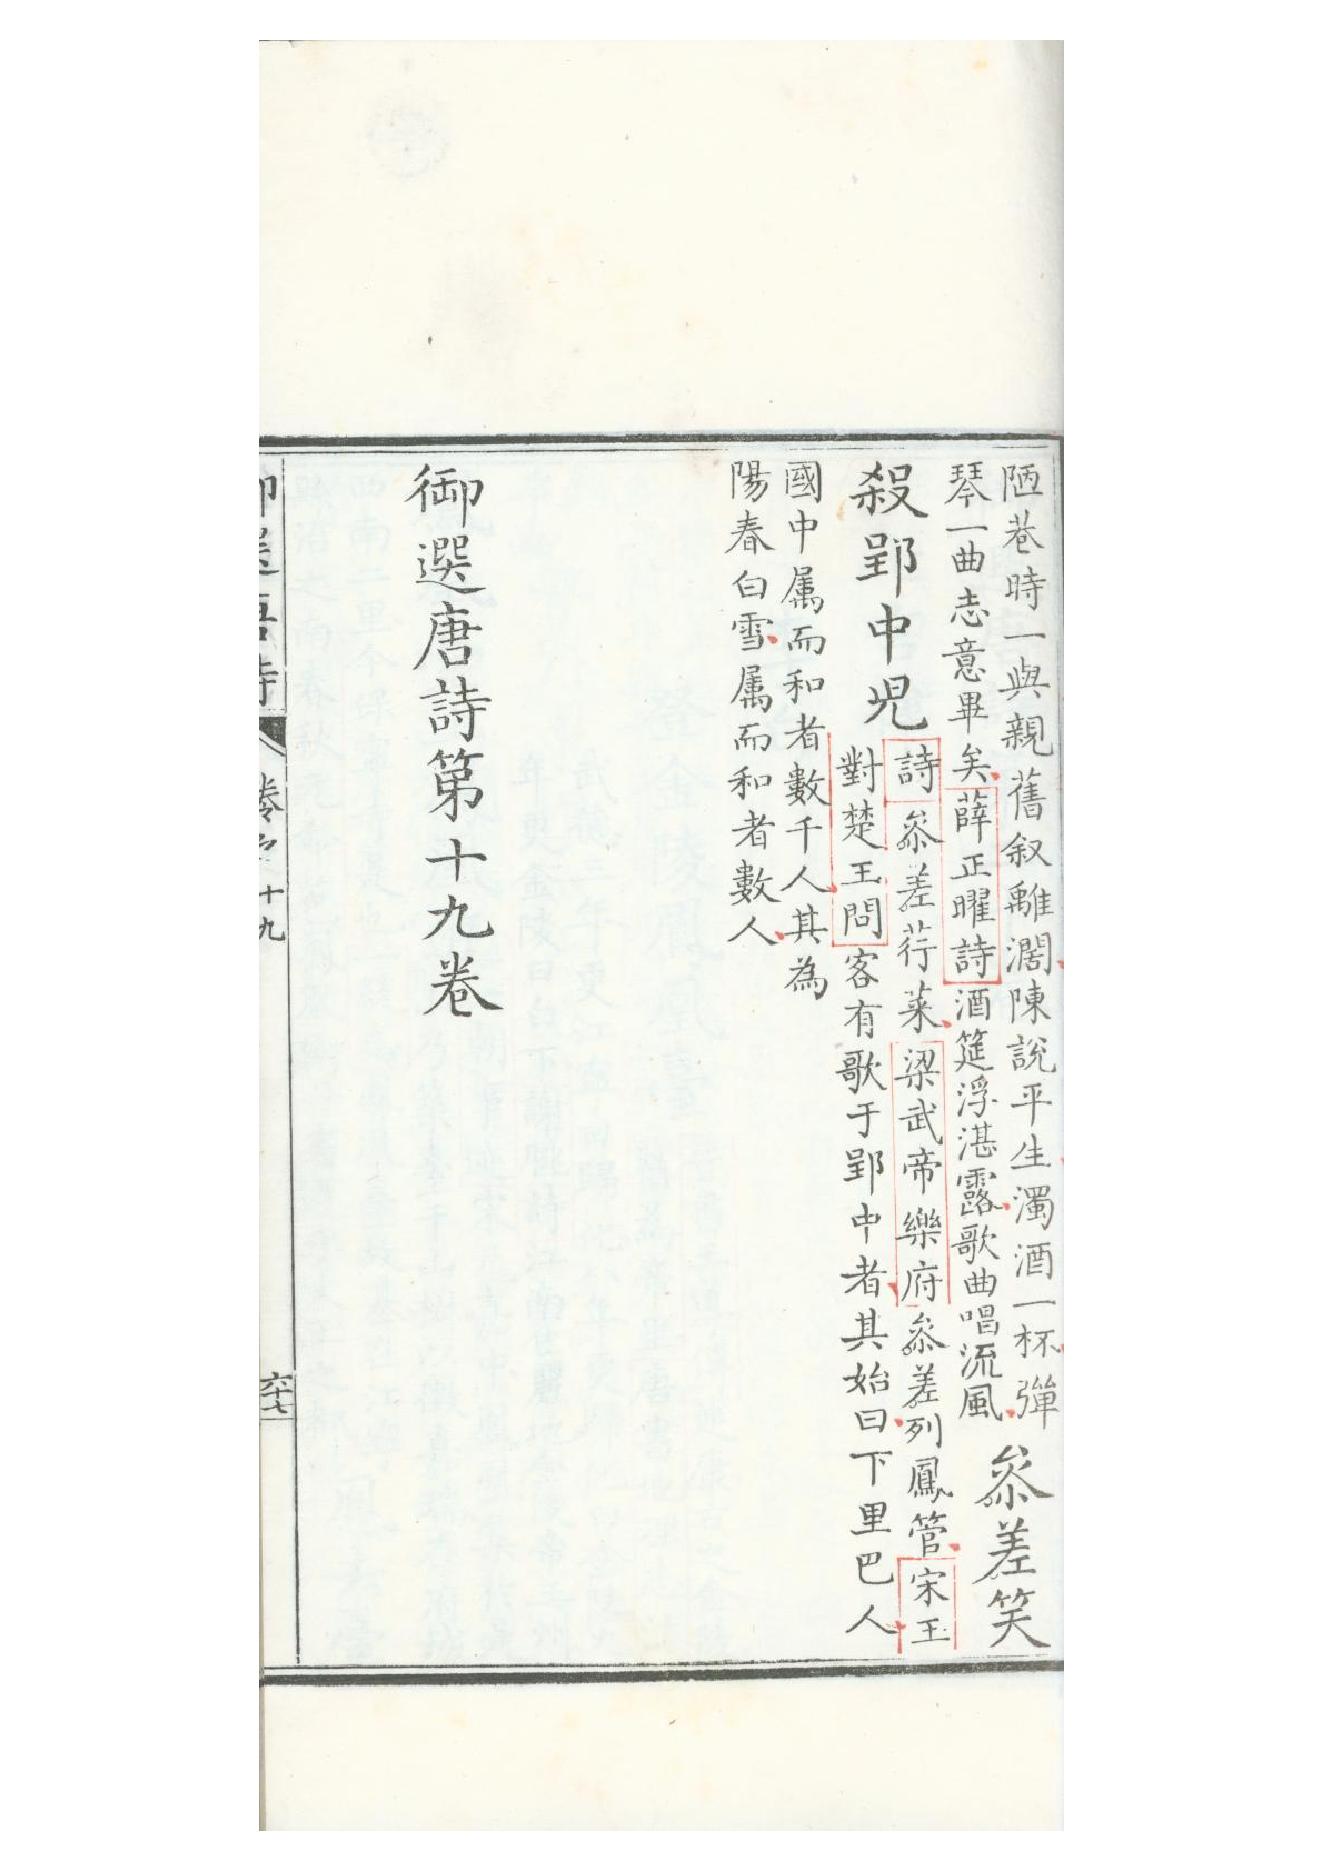 陋巷時一與親舊叙離濶陳說平生濁酒一杯彈
琴一曲志意畢矣薛正曜詩酒筵浮湛露歌曲唱流風
參差笑
殺郢中兒
詩參差荇菜梁武帝樂府參差列鳳管宋玉
對楚王問客有歌于郢中者其始曰下里巴人
國中属而和者數千人其為
陽春白雪属而和者數人
御選唐詩第十九卷
御選唐詩
卷之十九
六十七